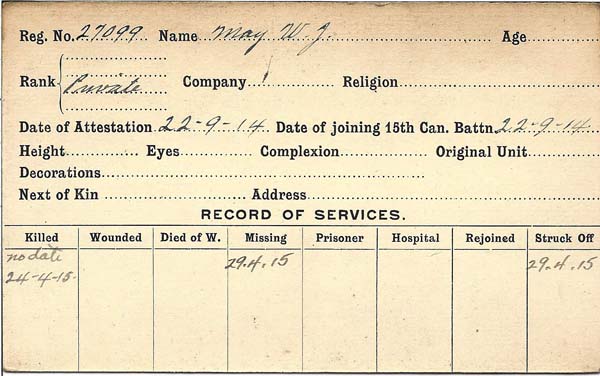 Reg. No. 27099 Name May W. J. Age
Rank Private Company Religion
Date of Attestation 22-9-14 Date of joining 15th Can. Battn. 22-9-14
Height Eyes Complexion Original Unit
Decorations
Next of Kin Address
RECORD OF SERVICES.
Killed Wounded Died of W. Missing Prisoner Hospital Rejoined Struck Off
no date 29.4.15 29.4.15
24-4-15.